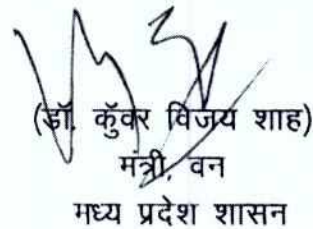 (डॉ. कुँवर विजय शाह)
मंत्री, वन
मध्य प्रदेश शासन